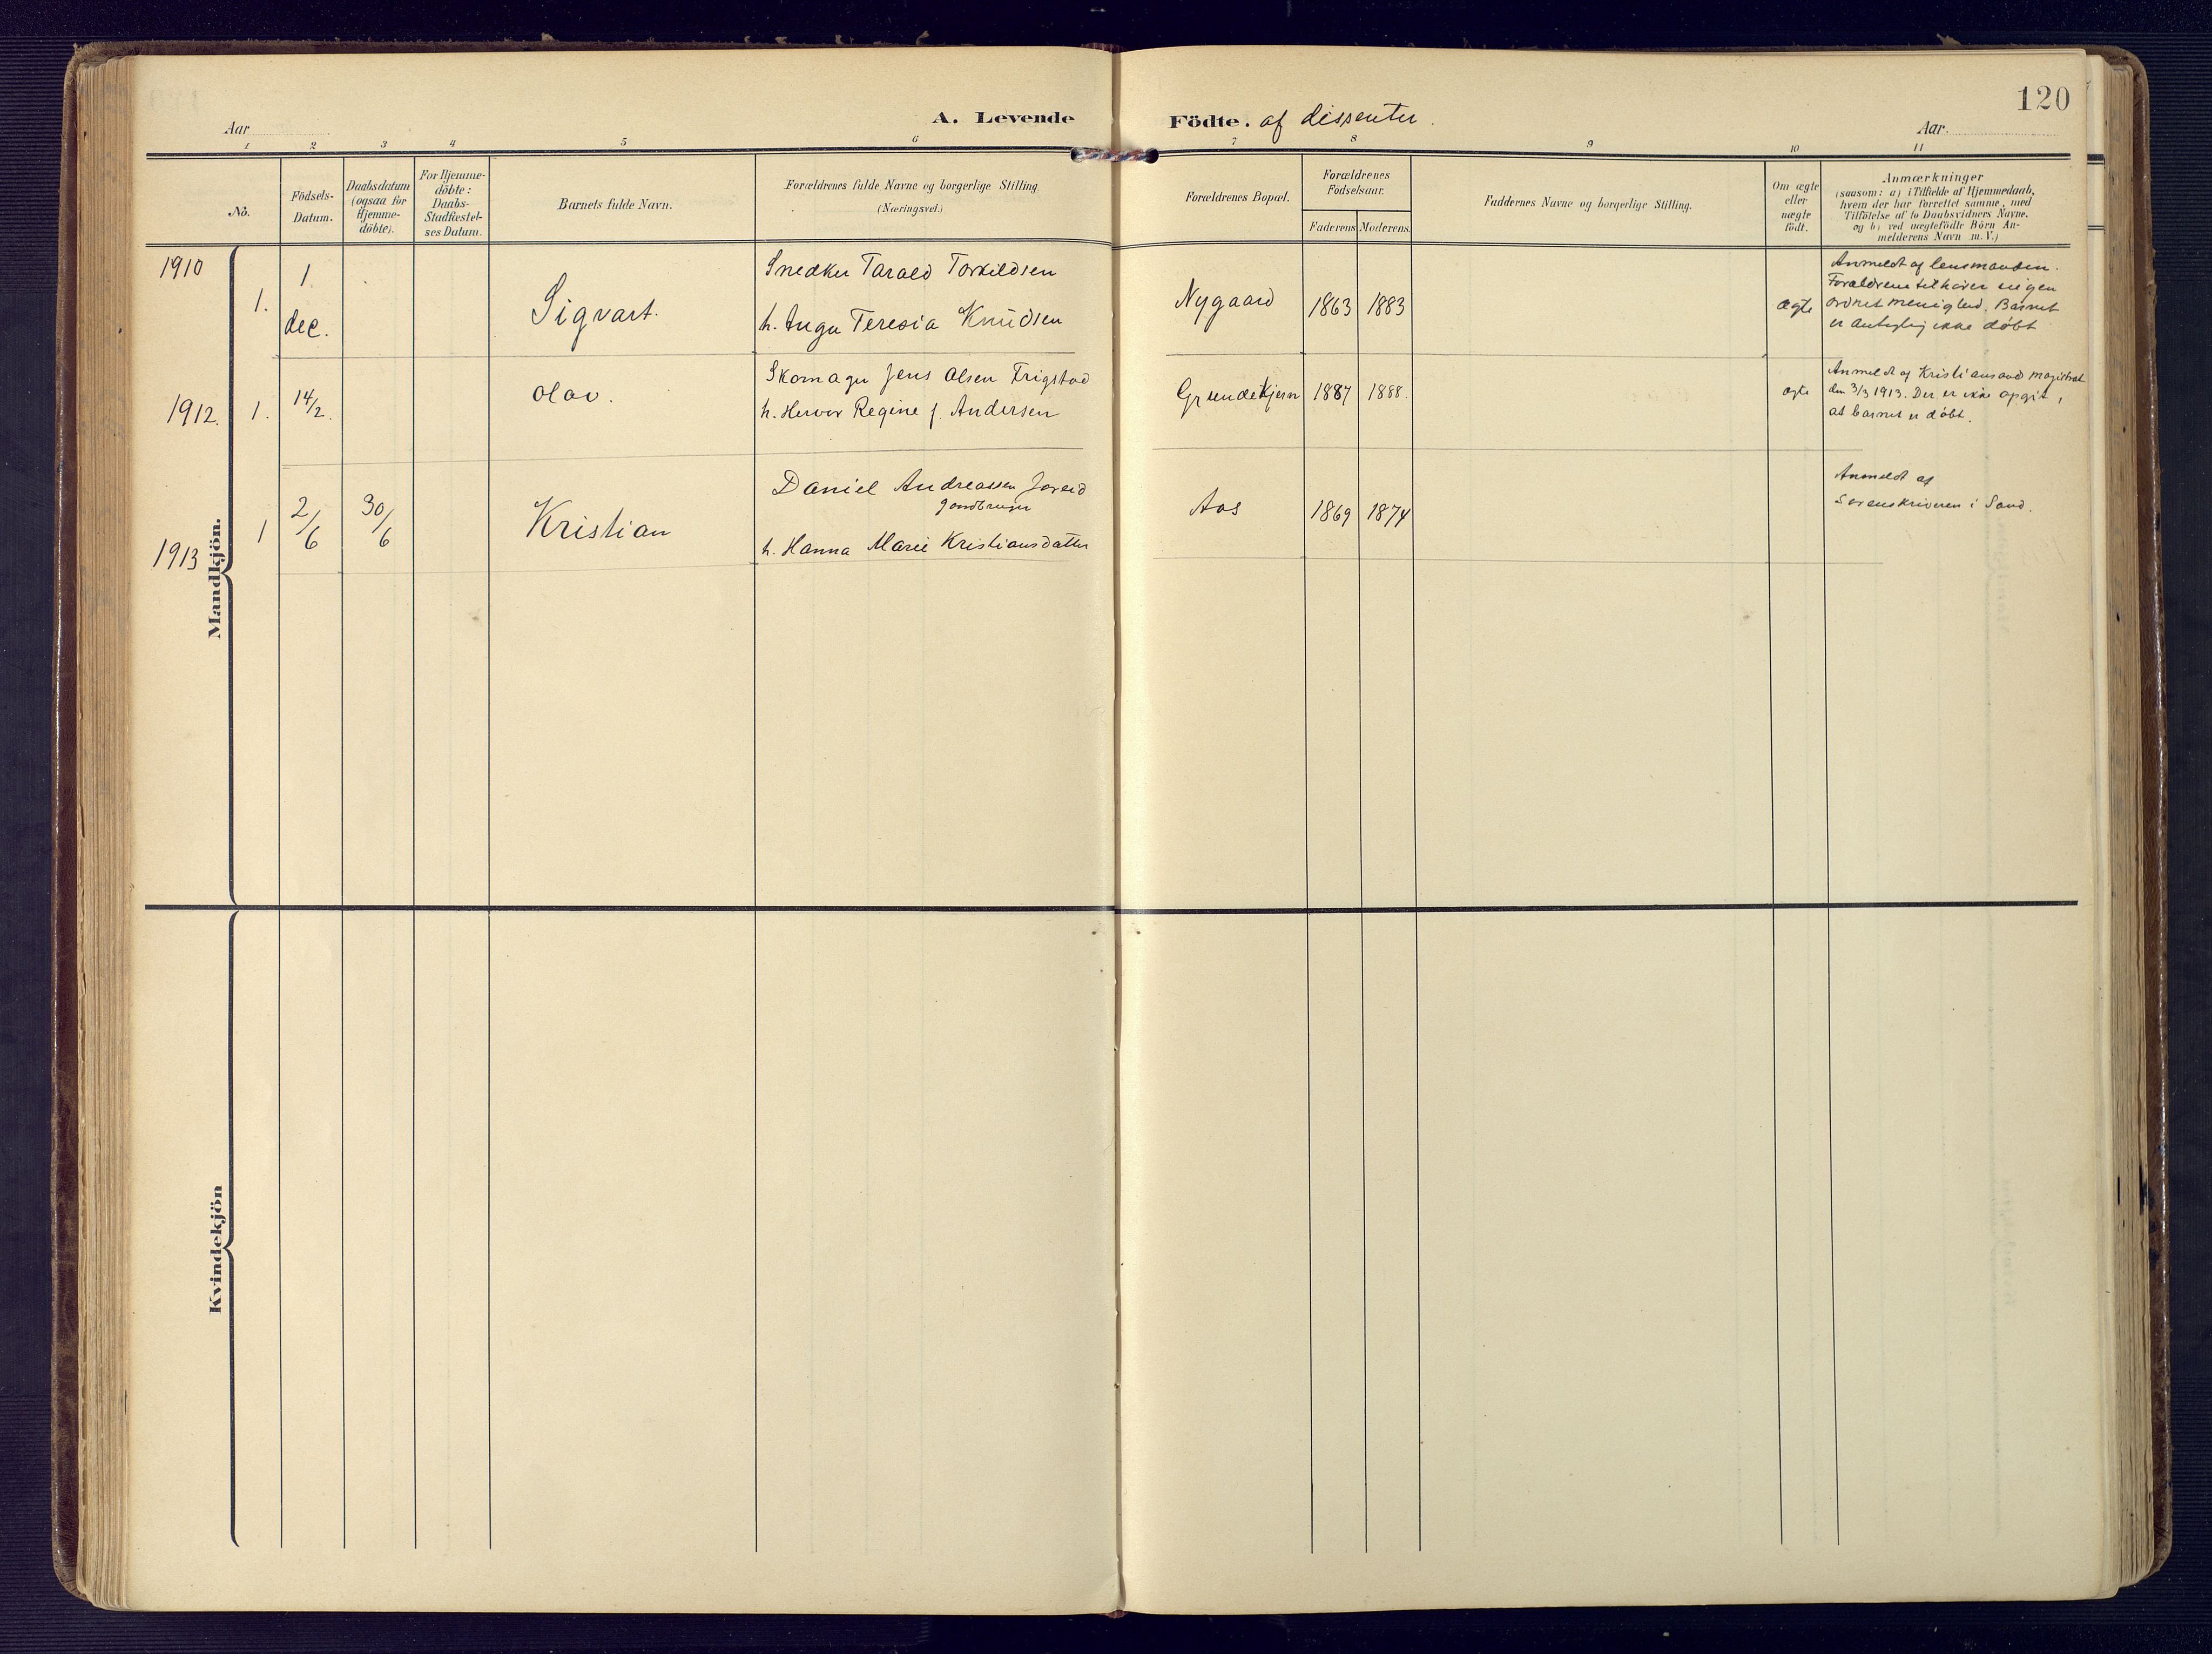 120
Aar
A. Levende
Födte. af dissenter.
Aar.
1 2 3 4 5 6 7 8 9 10 11
No.
Födsels-
Datum.
Daabsdatum
(ogsaa for
Hjemme-
döbte).
For Hjemme-
döbte:
Daabs-
Stadfæstel-
ses Datum.
Barnets fulde Navn.
Forældrenes fulde Navne og borgerlige Stilling.
(Næringsvei.)
Forældrenes Bopæl.
Forældrenes
Födselsaar.
Faderens Moderens.
Faddernes Navne og borgerlige Stilling.
Om ægte
eller
uægte
födt.
Anmærkninger
(saasom: a) i Tilfælde af Hjemmedaab,
hvem der har forrettet samme, med
Tilföielse af to Daabsvidners Navne,
og b) ved uægtefödte Börn An-
melderens Navn m. V.)
Mandkjön.
1910
1.
1
dec.
Sigvart.
Snedker Tarald Torkildsen
h. Teresia Knudsen
Nygaard
1863 1883
ægte
Anmeldt af lensmanden.
Forældrene tilhører ingen
ordnet menighed. Barnet
er antagelig ikke døbt
1912.
1.
14/2.
Olav.
Skomager Jens Olsen Frigstad
h. Regine f. Andersen
Grundekjern
1887 1888.
ægte
Anmeldt af Kristiansand magistrat
den 3/3 1913. Der er ikke opgit,
at barnet er døbt.
1913
1
2/6
30/6
Kristian
Daniel Andreassen
gaardbruger
h. Hanna Marie Kristiansdatter
Aas
1869 1874
Anmeldt af
Sorenskriveren i Sand.
Kvindekjön